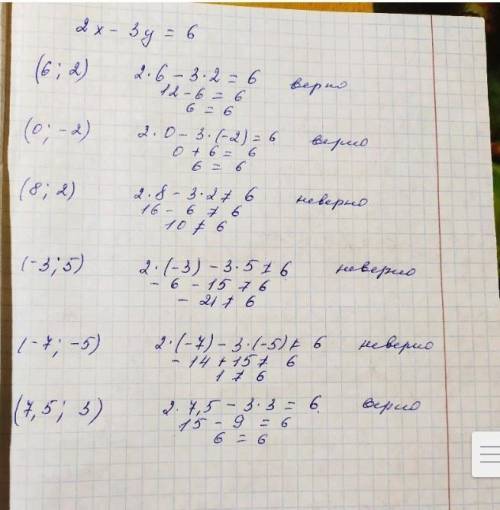 2x - 3y = 6
(6; 2) 2·6 - 3·2 = 6 верно
12 - 6 = 6
6 = 6
(0; -2) 2·0 - 3·(-2) = 6 верно
0 + 6 = 6
6 = 6
(8; 2) 2·8 - 3·2 ≠ 6 неверно
16 - 6 ≠ 6
10 ≠ 6
(-3; 5) 2·(-3) - 3·5 ≠ 6 неверно
- 6 - 15 ≠ 6
- 21 ≠ 6
(-7; -5) 2·(-7) - 3·(-5) ≠ 6 неверно
- 14 + 15 ≠ 6
1 ≠ 6
(7,5; 3) 2·7,5 - 3·3 = 6 верно
15 - 9 = 6
6 = 6